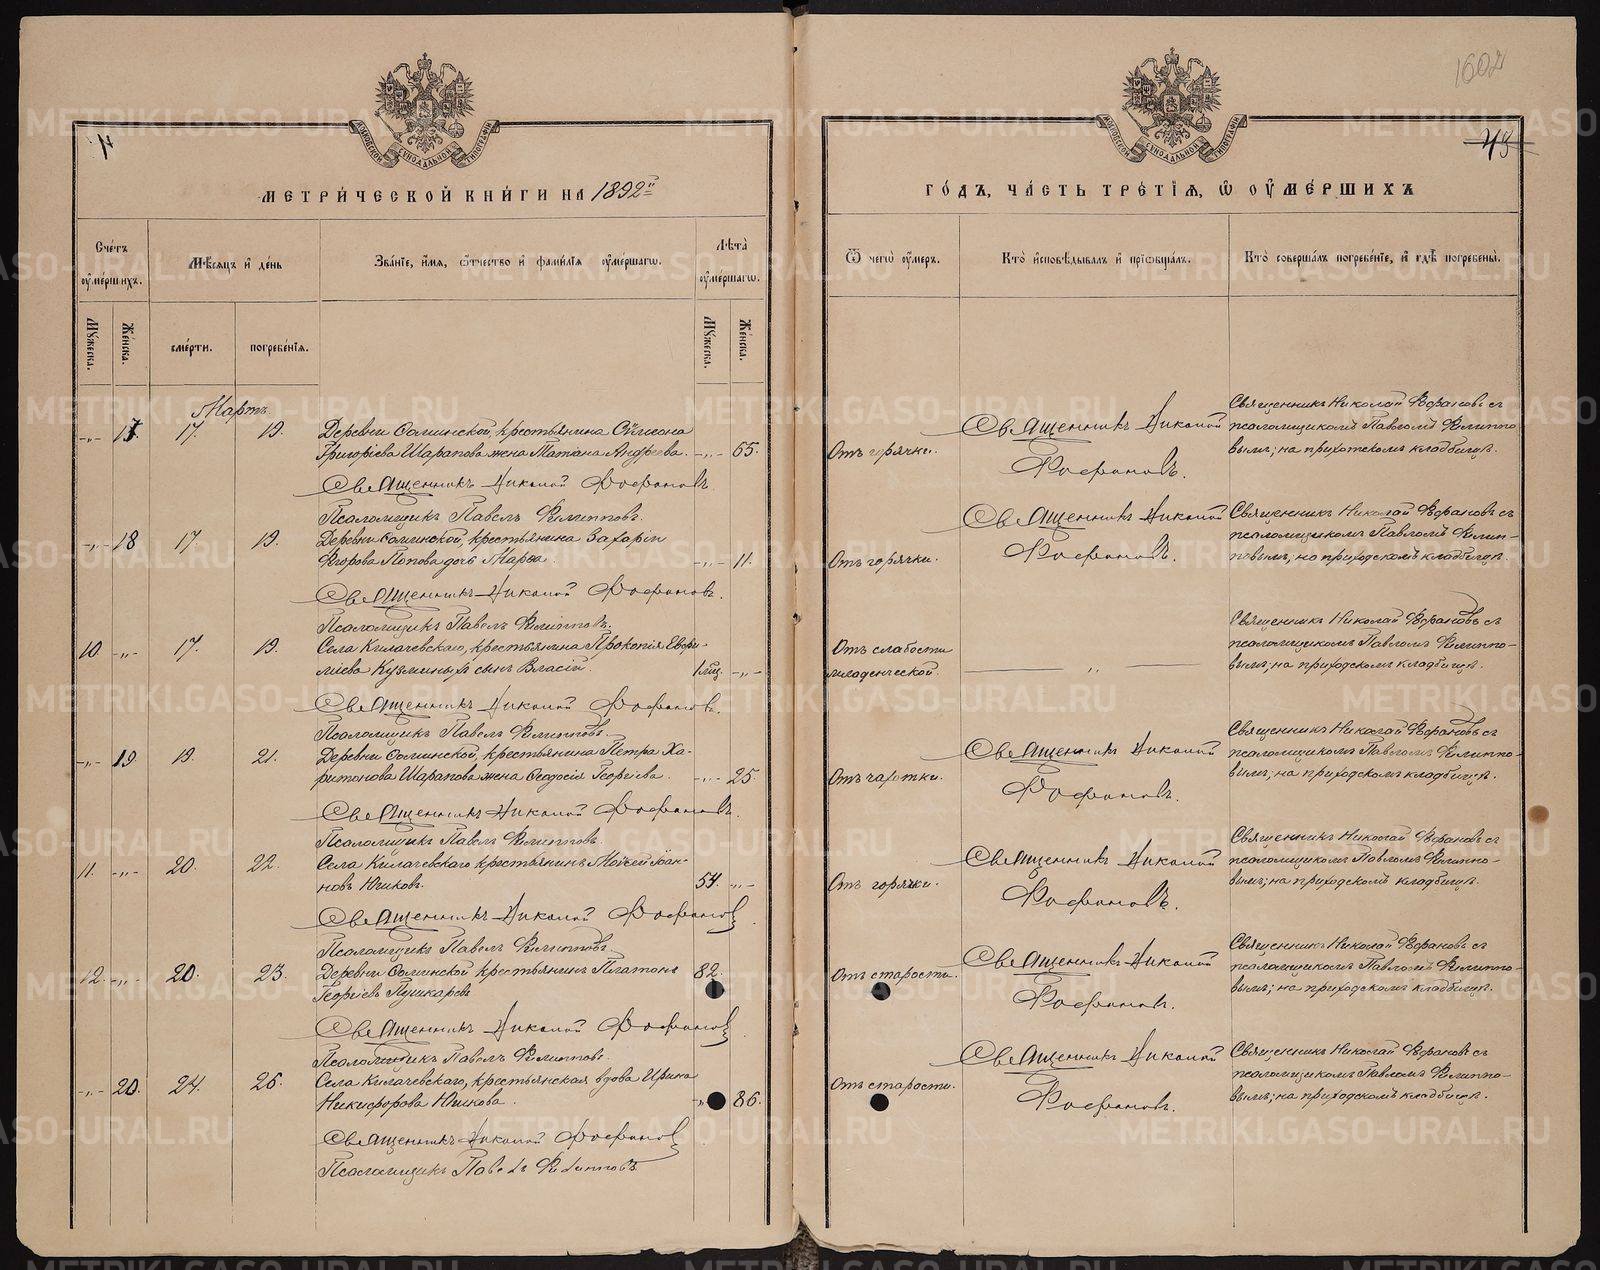 1602
МЕТРИЧЕСКОЙ КНИГИ НА 1892й
ГОДЪ, ЧАСТЬ ТРЕТІЯ, Ѽ ОУМЕРШИХЪ
МОСКОВСКОЙ СѴНОДАЛЬНОЙ ТИПОГРАФІИ
МОСКОВСКОЙ СѴНОДАЛЬНОЙ ТИПОГРАФІИ
Счетъ оумершихъ.
Мужеска.
Женска.
Мѣсяцъ и день
смерти.
погребенія.
Званіе, имя, отчество и фамилія оумершагѡ.
Лѣта оумершагѡ.
Мужеска.
Женска.
Ѿ чегѡ оумеръ.
Кто исповѣдывалъ и пріобщалъ.
Кто совершалъ погребеніе, и гдѣ погребены.
Мартъ.
-„- 17 17. 19. Деревни крестьянина Сѵмеона
Григоріева Шарапова жена Татіана Андреева. -„- 65.
Отъ горячки.
Священникъ Николай
Фофановъ.
Священникъ Николай Фофановъ съ
псаломщикомъ Павломъ Филиппо-
вымъ; на приходскомъ кладбищѣ.
Священникъ Николай Фофановъ.
Псаломщикъ Павелъ Филипповъ.
-„- 18 17 19. Деревни крестьянина Захаріи
Егорова Попова дочь Марѳа. -„- 11.
Отъ горячки.
Священникъ Николай
Фофановъ.
Священникъ Николай Фофановъ съ
псаломщикомъ Павломъ Филип-
повымъ; на приходскомъ кладбищѣ.
Священникъ Николай Фофановъ.
Псаломщикъ Павелъ Филипповъ.
10 -„- 17. 19. Села Килачевскаго, крестьянина Прокопія Евфи-
міева Кузминыхъ сынъ Власій. 1 мц. -„-
Отъ слабости
младенческой.
Священникъ Николай Фофановъ съ
псаломщикомъ Павломъ Филиппо-
вымъ; на приходскомъ кладбищѣ.
Священникъ Николай Фофановъ.
Псаломщикъ Павелъ Филипповъ.
-„- 19 19. 21. Деревни крестьянина Петра Ха-
ритонова Шарапова жена Ѳеодосія Георгіева. -„- 25
Отъ чахотки.
Священникъ Николай
Фофановъ.
Священникъ Николай Фофановъ съ
псаломщикомъ Павломъ Филиппо-
вымъ; на приходскомъ кладбищѣ.
Священникъ Николай Фофановъ.
Псаломщикъ Павелъ Филипповъ.
11. -„- 20. 22. Села Килачевскаго крестьянинъ Моисей Іоан-
новъ Юшковъ. 54. -„-
Отъ горячки.
Священникъ Николай
Фофановъ.
Священникъ Николай Фофановъ съ
псаломщикомъ Павломъ Филиппо-
вымъ; на приходскомъ кладбищѣ.
Священникъ Николай Фофановъ.
Псаломщикъ Павелъ Филипповъ.
12. -„- 20. 23. Деревни крестьянинъ Платонъ
Георгіевъ Пушкаревъ 82.
Отъ старости.
Священникъ Николай
Фофановъ.
Священникъ Николай Фофановъ съ
псаломщикомъ Павломъ Филиппо-
вымъ; на приходскомъ кладбищѣ.
Священникъ Николай Фофановъ
Псаломщикъ Павелъ Филипповъ.
-„- 20. 24. 26. Села Килачевскаго, крестьянская вдова Ирина
Никифорова Юшкова. 86.
Отъ старости.
Священникъ Николай
Фофановъ.
Священникъ Николай Фофановъ съ
псаломщикомъ Павломъ Филиппо-
вымъ; на приходскомъ кладбищѣ.
Священникъ Николай Фофановъ
Псаломщикъ Павелъ Филипповъ
METRIKI.GASO-URAL.RU